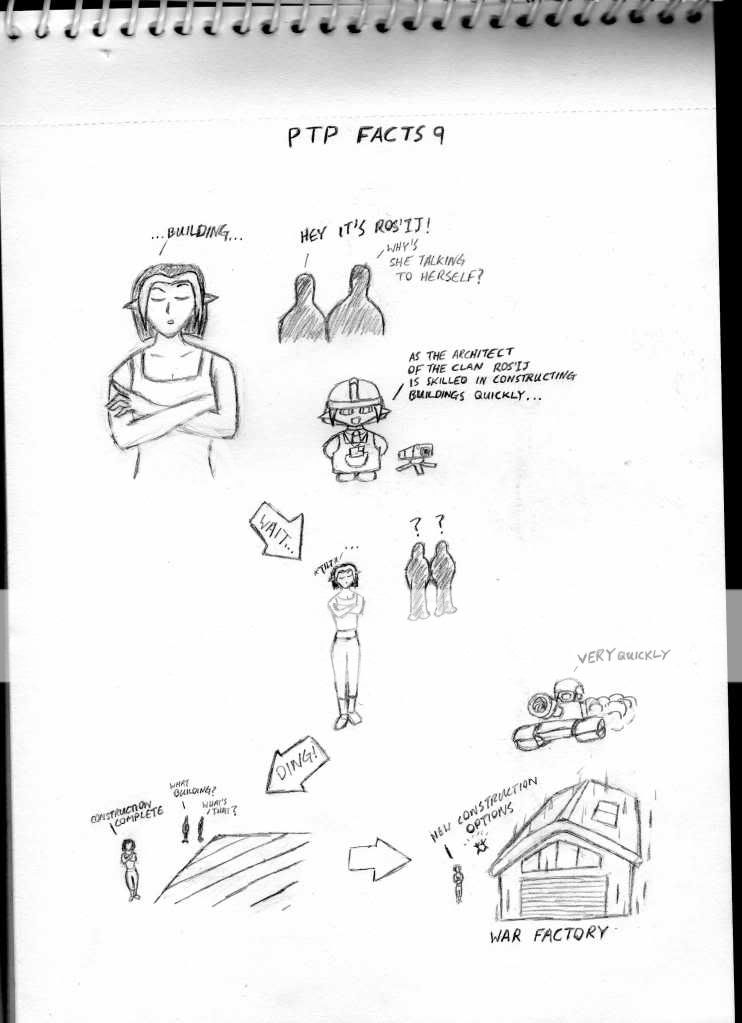 PTP FACTS 9
...BUILDING...
HEY IT'S ROS'IJ!
WHY'S
SHE TALKING
TO HERSELF?
AS THE ARCHITECT
OF THE CLAN ROS'IJ
IS SKILLED IN CONSTRUCTING
BUILDINGS QUICKLY...
WAIT...
...
? ?
VERY QUICKLY
DING!
WHAT
BUILDING?
WHAT'S
THAT?
CONSTRUCTION
COMPLETE
NEW CONSTRUCTION
OPTIONS
WAR FACTORY